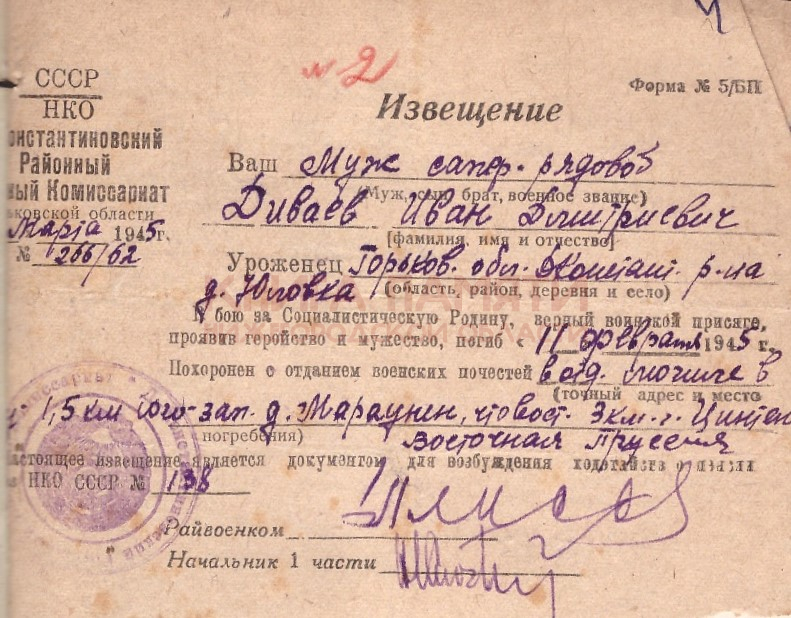 № 2
Форма № 5/БП
СССР
НКО
онстантиновский
Районный
ный Комиссариат
ьковской области
Марта 1945 г.
№ 266/62
Извещение
Ваш Муж сапер. рядовой
(Муж, сын, брат, военное звание)
Диваев Иван Дмитриевич
(фамилия, имя и отчество)
Уроженец Горьков. обл. Констант. р-на
д. Юловка (область, район, деревня и село)
В бою за Социалистическую Родину, верный воинской присяге,
проявив геройство и мужество, погиб « 11 февраля 1945 г.
Похоронен с отданием военских почестей в отд. могиле в
(точный адрес и место
1,5 км юго-зап. д. Мараунен, что вост. 3 км. г. Цинтен
погребения) Восточная Пруссия
астоящее извещение является документом для возбуждения ходатайств о пенсии
НКО СССР № 138
Райвоенком
Начальник 1 части